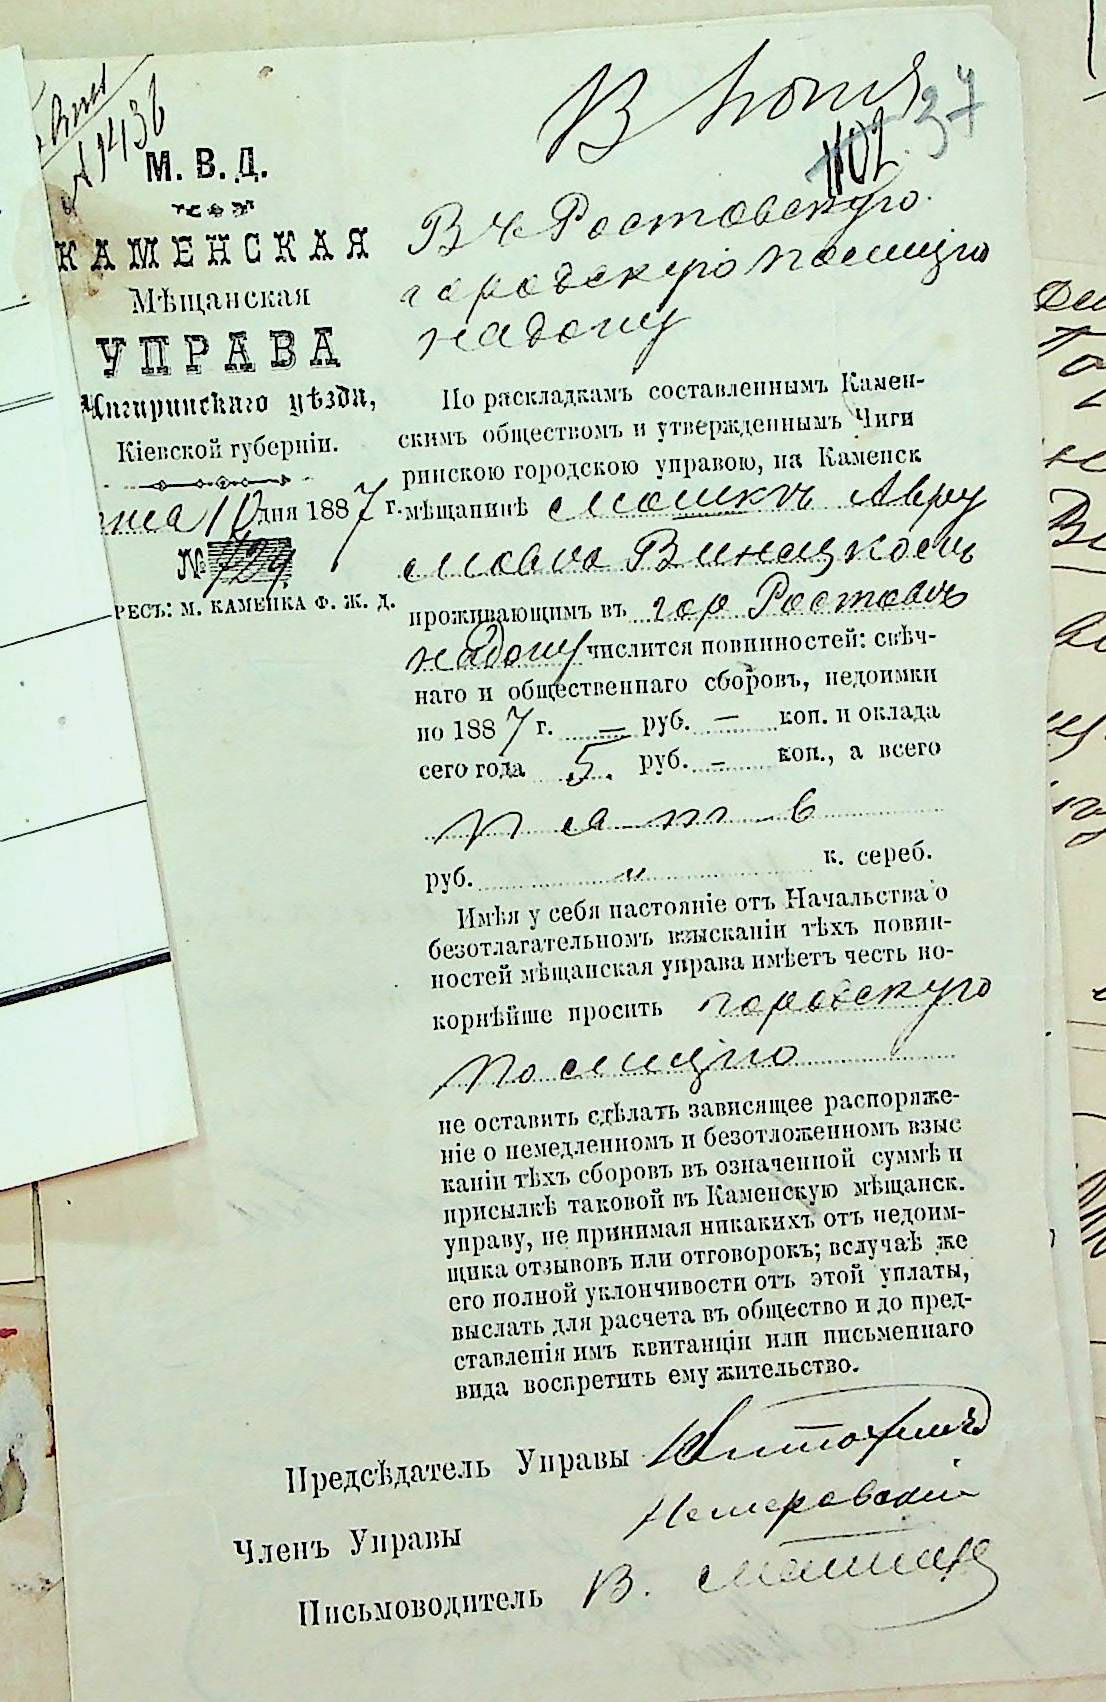 № 1436
В Копія
1102. 37
М. В. Д.
КАМЕНСКАЯ
Мѣщанская
УПРАВА
Чигиринскаго уѣзда,
Кіевской губерніи.
10 дня 1887 г.
№ 729
РЕСЪ: М. КАМЕНКА Ф. Ж. Д.
В Ростовскую
городскую полицію
на дону
По раскладкамъ составленнымъ Камен-
скимъ обществомъ и утвержденнымъ Чиги
ринскою городскою управою, на Каменск
мѣщанинѣ Мошкѣ Авру
мова Виницкомъ
проживающимъ въ гор Ростовѣ
на дону числится повинностей: свѣч-
наго и общественнаго сборовъ, недоимки
по 1887 г. — руб. — коп. и оклада
сего года 5. руб. - коп., а всего
пять
руб. " к. сереб.
Имѣя у себя настояніе отъ Начальства о
безотлагательномъ взысканіи тѣхъ повин-
ностей мѣщанская управа имѣетъ честь по-
корнѣйше просить городскую
полицію
не оставить сдѣлать зависящее распоряже-
ніе о немедленномъ и безотложенномъ взыс
каніи тѣхъ сборовъ въ означенной суммѣ и
присылкѣ таковой въ Каменскую мѣщанск.
управу, не принимая никакихъ отъ недоим-
щика отзывовъ или отговорокъ; вслучаѣ же
его полной уклончивости отъ этой уплаты,
выслать для расчета въ общество и до пред-
ставленія имъ квитанціи или письменнаго
вида воспретить ему жительство.
Предсѣдатель Управы
Членъ Управы Немеровскій
Письмоводитель В.